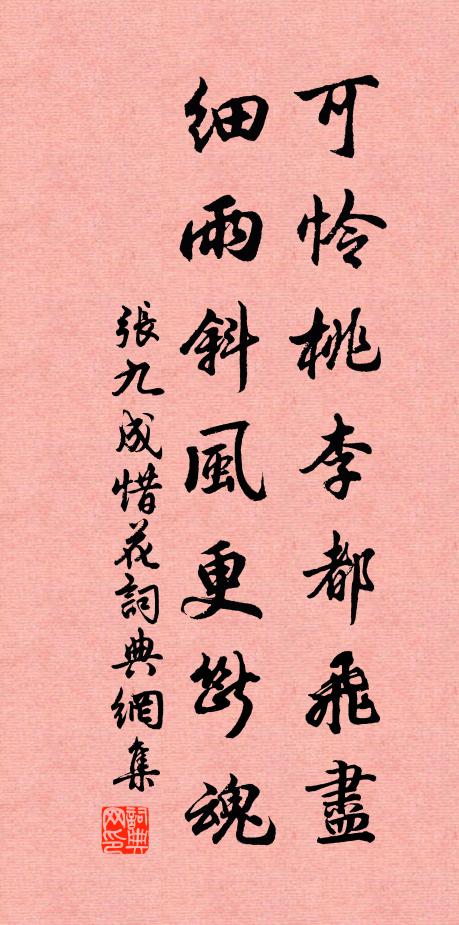 可憐桃李都飛盡
細雨斜風更斷魂
張九成惜花詞典網集
詞典
网印